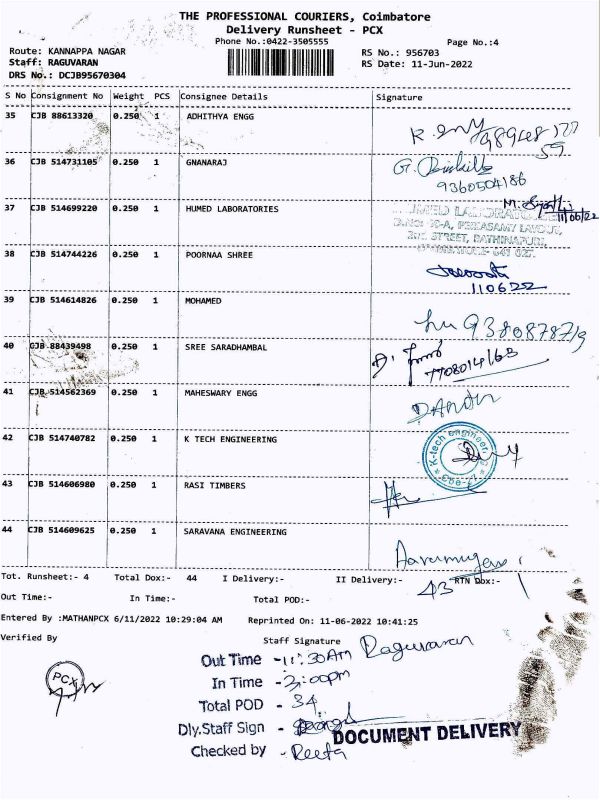 THE PROFESSIONAL COURIERS, Coimbatore
Delivery Runsheet - PCX
Phone No.:0422-3505555
Page No.:4
Route: KANNAPPA NAGAR
RS No.: 956703
Staff: RAGUVARAN
RS Date: 11-Jun-2022
DRS No.: DCJB95670304
S No Consignment No Weight PCS Consignee Details Signature
35 CJB 88613320 0.250 1 ADHITHYA ENGG
36 CJB 514731105 0.250 1 GNANARAJ
G.
9360504186
37 CJB 514699220 0.250 1 HUMED LABORATORIES
11/06/22
38 CJB 514744226 0.250 1 POORNAA SHREE
110622
39 CJB 514614826 0.250 1 MOHAMED
40 CJB 88439498 0.250 1 SREE SARADHAMBAL
7708014168
41 CJB 514562369 0.250 1 MAHESWARY ENGG
42 CJB 514740782 0.250 1 K TECH ENGINEERING
43 CJB 514606980 0.250 1 RASI TIMBERS
44 CJB 514609625 0.250 1 SARAVANA ENGINEERING
Tot. Runsheet:- 4 Total Dox:- 44 I Delivery:- II Delivery:- 43 RTN Dox:- 1
Out Time:- In Time:- Total POD:-
Entered By :MATHANPCX 6/11/2022 10:29:04 AM Reprinted On: 11-06-2022 10:41:25
Verified By Staff Signature
Raguvaran
PCX
Out Time - 11:30AM
In Time - 3:00pm
Total POD - 34
Dly.Staff Sign -
DOCUMENT DELIVERY
Checked by - Reeta